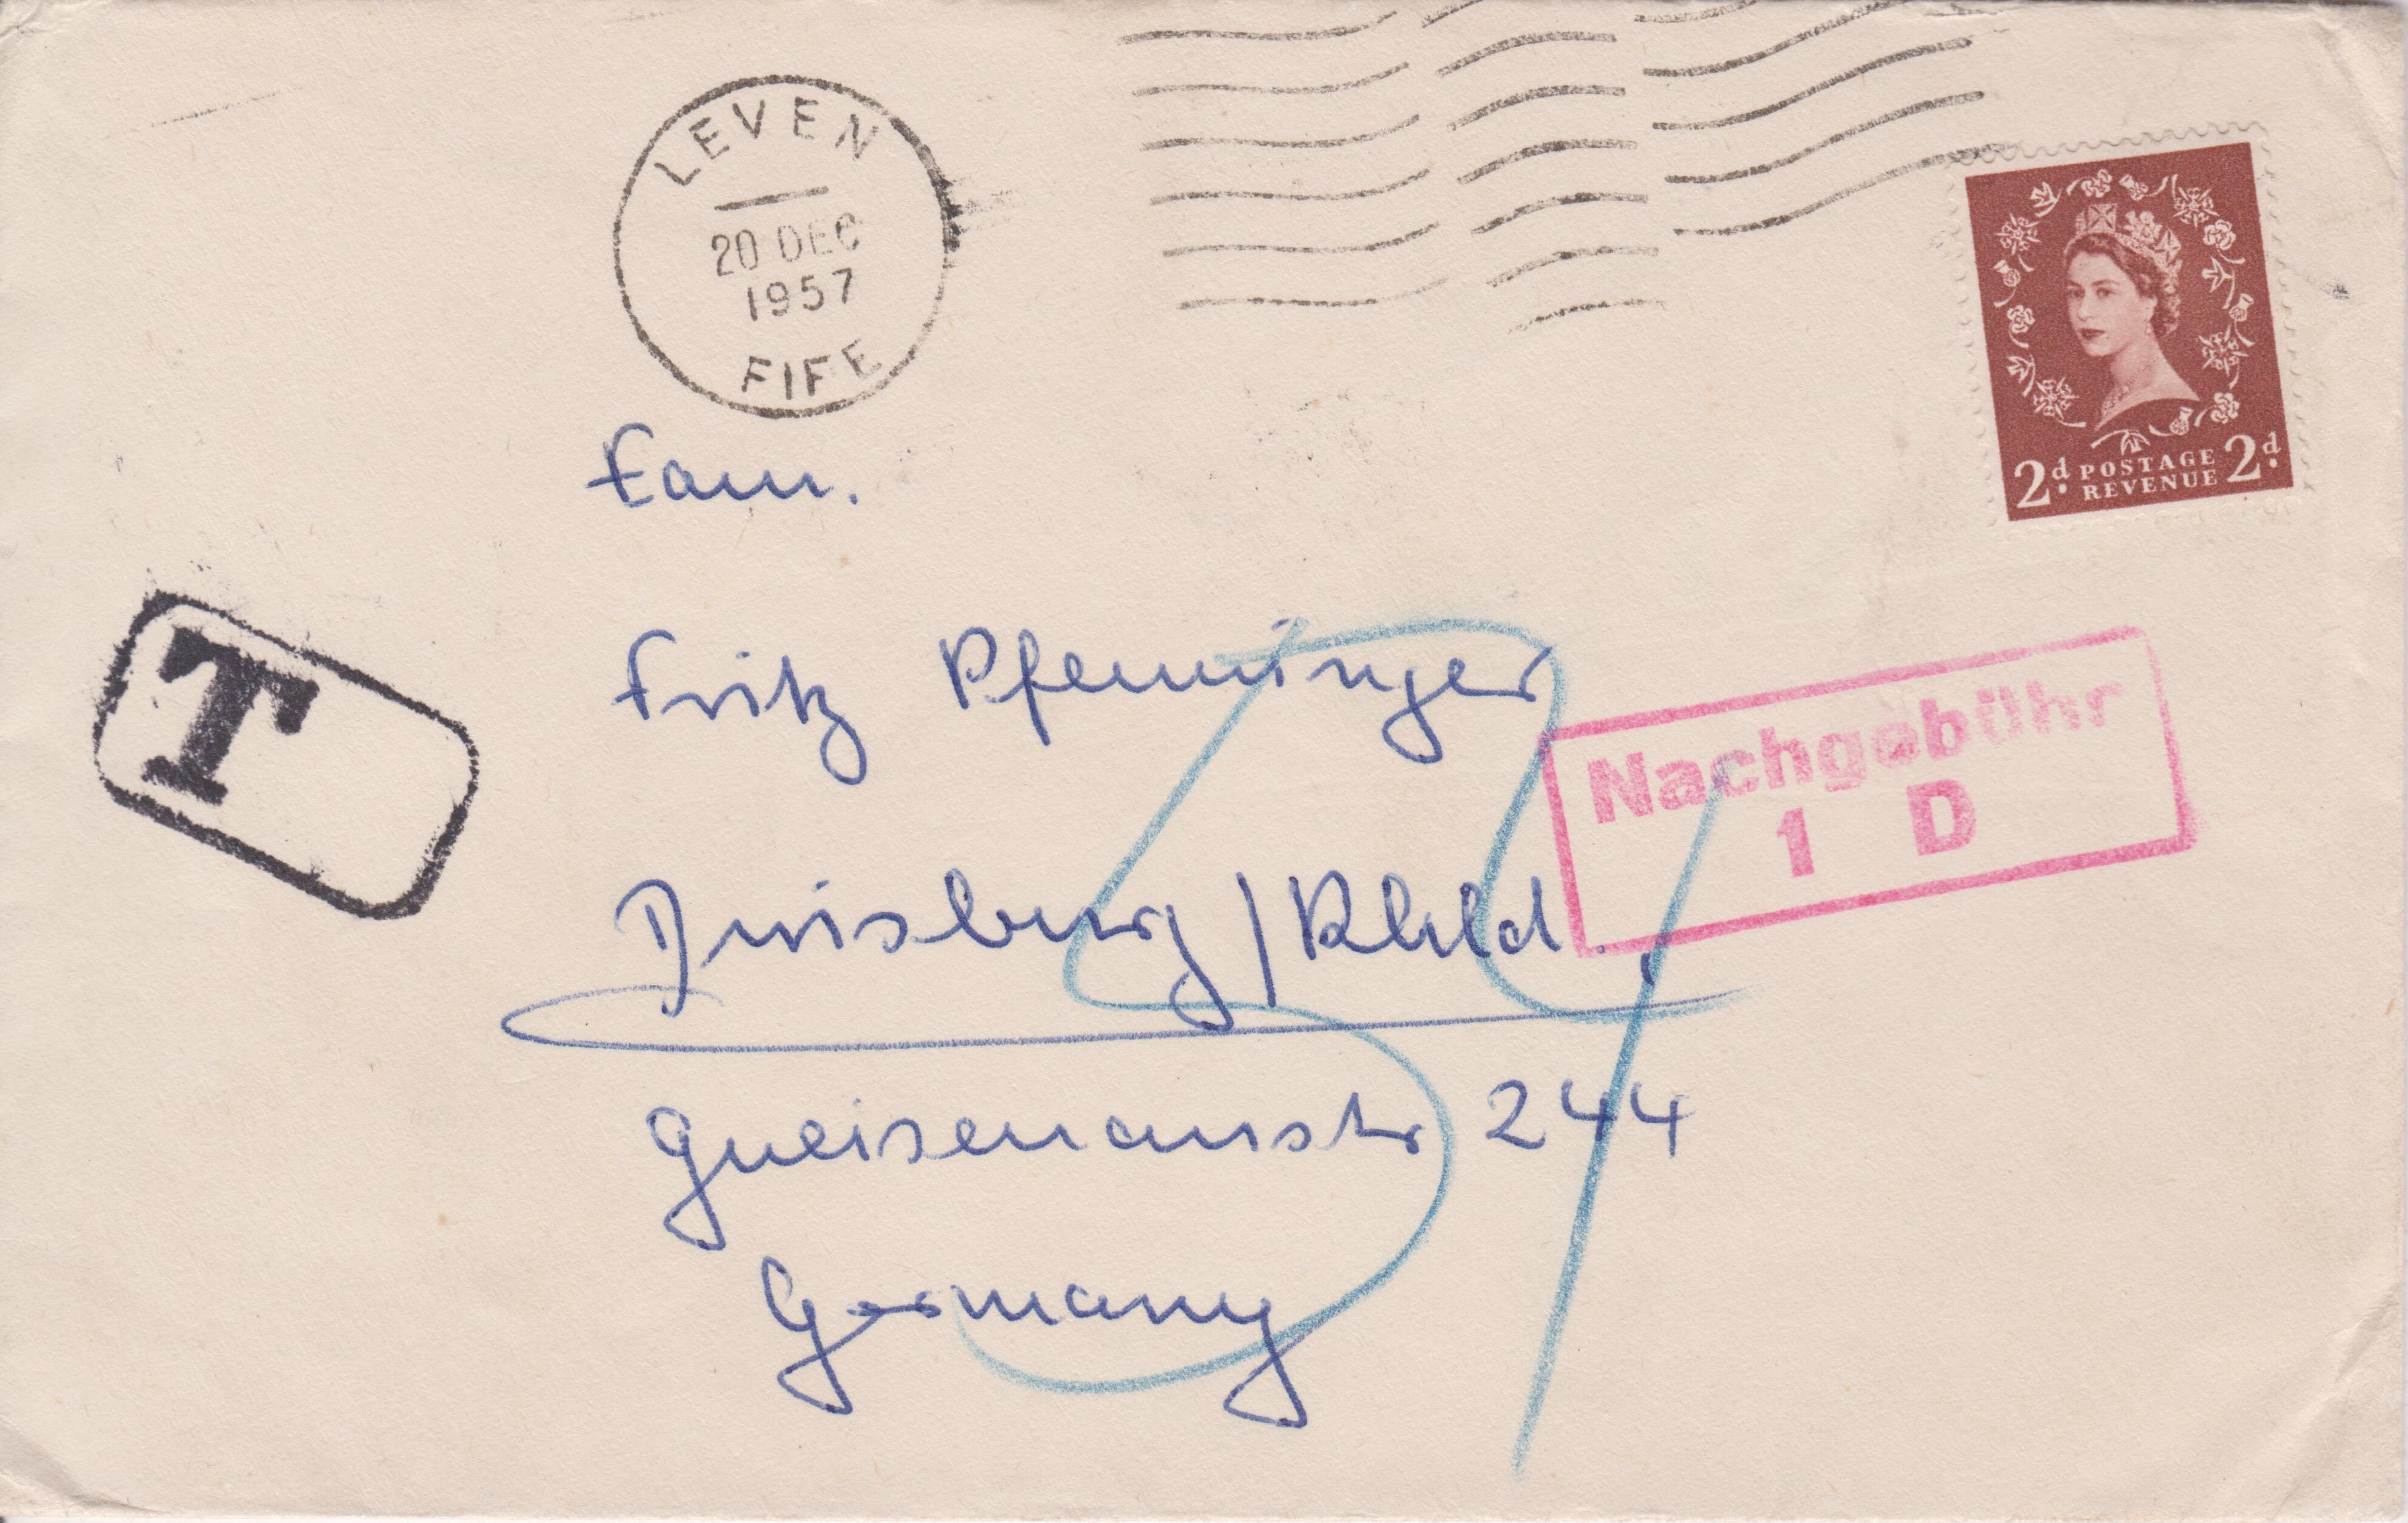 LEVEN
20 DEC
1957
FIFE
2d POSTAGE 2d
REVENUE
Fam.
Fritz Pfenninger
T
Nachgebühr
1 D
Duisburg / Rhld.
Gneisenaustr 244
Germany